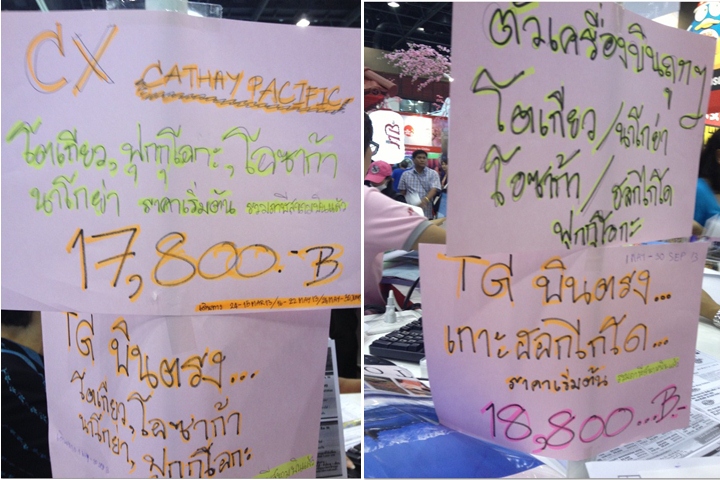 CX CATHAY PACIFIC
โตเกียว, ฟุกุโอกะ, โอซาก้า
นาโกย่า ราคาเริ่มต้น รวมภาษีสายการบินแล้ว
17,800.-B
TG บินตรง...
โตเกียว, โอซาก้า
นาโกย่า, ฟุกุโอกะ
ตั๋วเครื่องบินถูกๆ
โตเกียว/นาโกย่า
โอซาก้า/ฮอกไกโด
ฟุกุโอกะ
1 MAY - 30 SEP 13
TG บินตรง...
เกาะฮอกไกโด...
ราคาเริ่มต้น
18,800...B.-